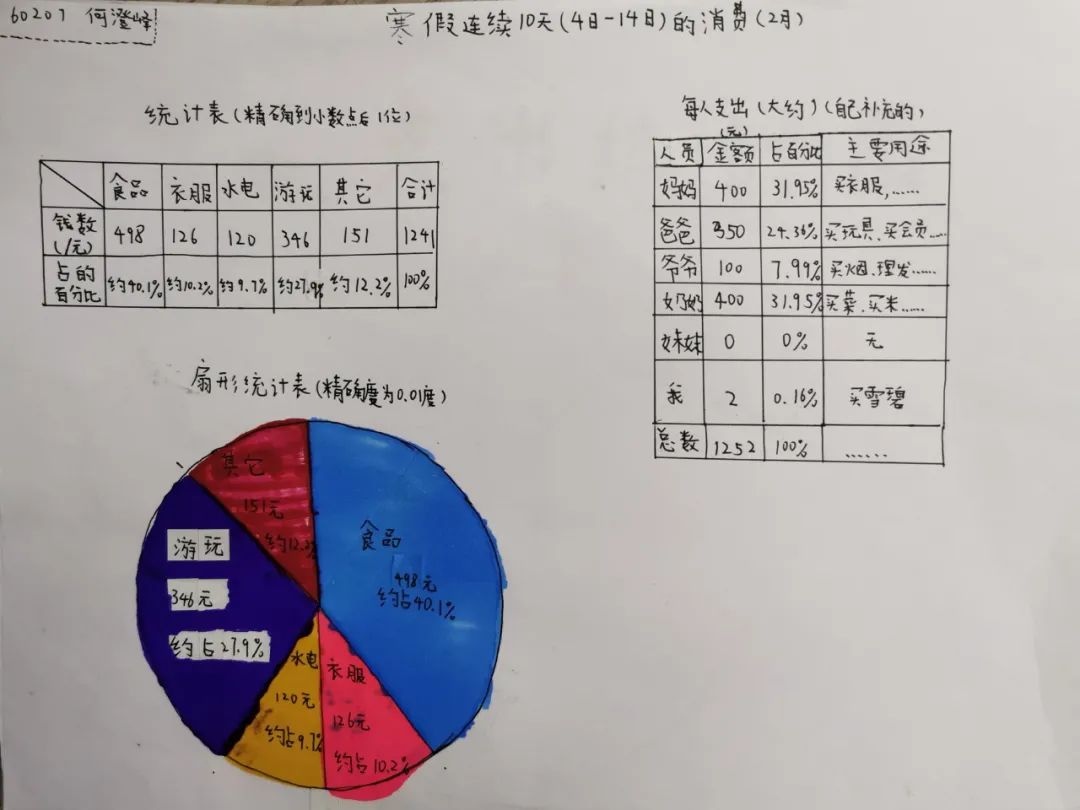 60207 何澄峰
寒假连续10天(4日-14日)的消费(2月)
统计表(精确到小数点后1位)
食品 衣服 水电 游玩 其它 合计
钱数(/元) 498 126 120 346 151 1241
占的百分比 约40.1% 约10.2% 约9.7% 约27.9% 约12.2% 100%
每人支出(大约)(自己补充的)
(元)
人员 金额 占百分比 主要用途
妈妈 400 31.95% 买衣服,……
爸爸 350 24.36% 买玩具、买会员……
爷爷 100 7.99% 买烟、理发……
奶奶 400 31.95% 买菜、买米……
妹妹 0 0% 无
我 2 0.16% 买雪碧
总数 1252 100% ……
扇形统计表(精确度为0.01度)
其它
151元
约12.2%
食品
498元
约占40.1%
游玩
346元
约占27.9%
水电
120元
约占9.7%
衣服
126元
约占10.2%